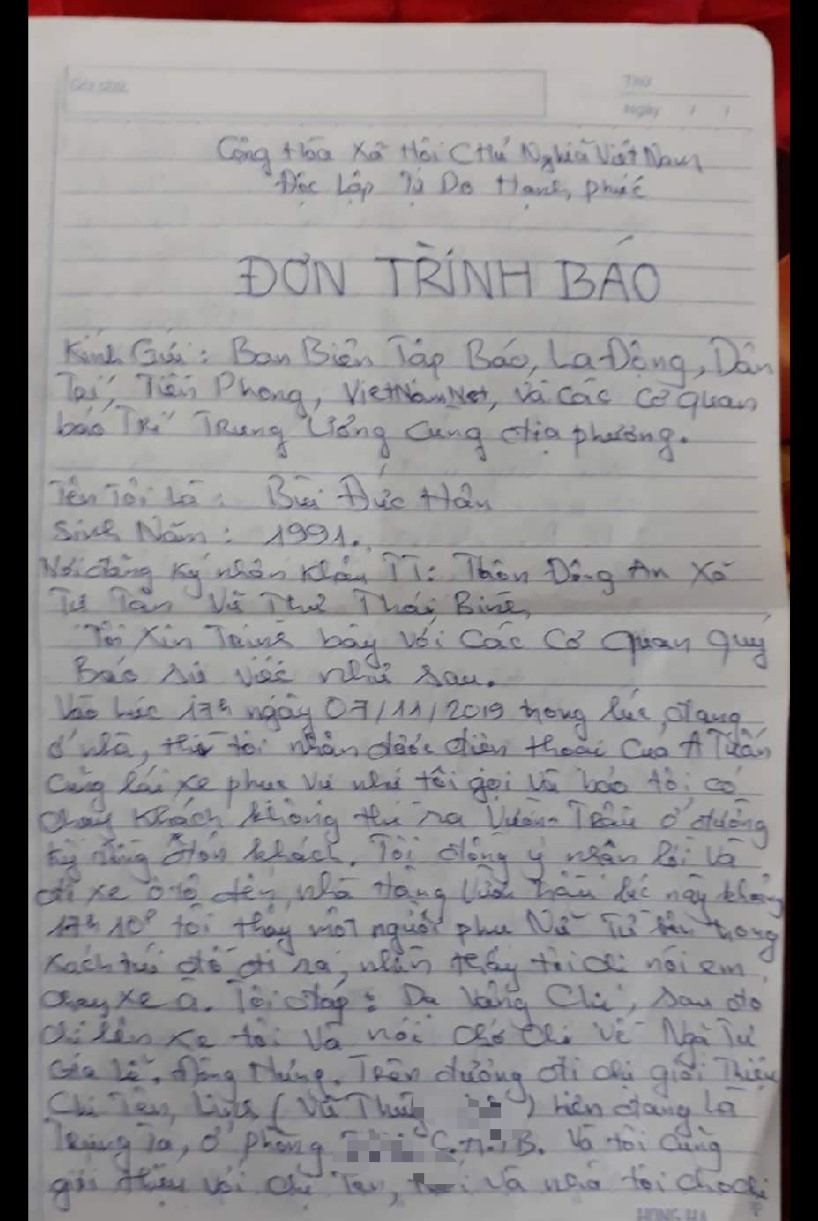 Thứ
Ngày / /
Cộng Hòa Xã Hội Chủ Nghĩa Việt Nam
Độc Lập Tự Do Hạnh phúc
ĐƠN TRÌNH BÁO
Kính Gửi: Ban Biên Tập Báo, La Động, Dân
Trí, Tiền Phong, VietNamNet, và các cơ quan
báo Trí Trung Ương cùng địa phương.
Tên Tôi Là: Bùi Đức Hân
Sinh Năm: 1991.
Nơi đăng ký nhân khẩu TT: Thôn Đông An Xã
Tự Tân Vũ Thư Thái Bình,
Tôi Xin Trình bầy Với Các Cơ Quan Quý
Báo sự việc như sau.
Vào lúc 17h ngày 07/11/2019 trong lúc, đang
ở nhà, thì tôi nhận được điện thoại Của A Tuấn
Cùng lái xe phục vụ như tôi gọi và báo tôi có
chạy khách không thì ra Vườn Trầu ở đường
Kỳ đồng đón khách. Tôi đồng ý nhận lời và
đi xe ô tô đến, nhà Hàng Vườn trầu lúc này khoảng
17h10p tôi thấy một người phụ Nữ Từ bên trong
xách túi đồ đi ra, nhìn thấy tôi chị nói em
chạy xe à. Tôi đáp: Dạ Vâng Chị, sau đó
chị lên xe tôi và nói chở chị về Ngã Tư
Gia Lễ. Đông Hưng. Trên đường đi chị giới Thiệu
Chị Tên, (Vũ Thúy ) hiện đang là
Trung Tá, ở phòng C.A.T.B. Và tôi cũng
giới thiệu với chị Tên, và nhà tôi cho chị
HONG HA